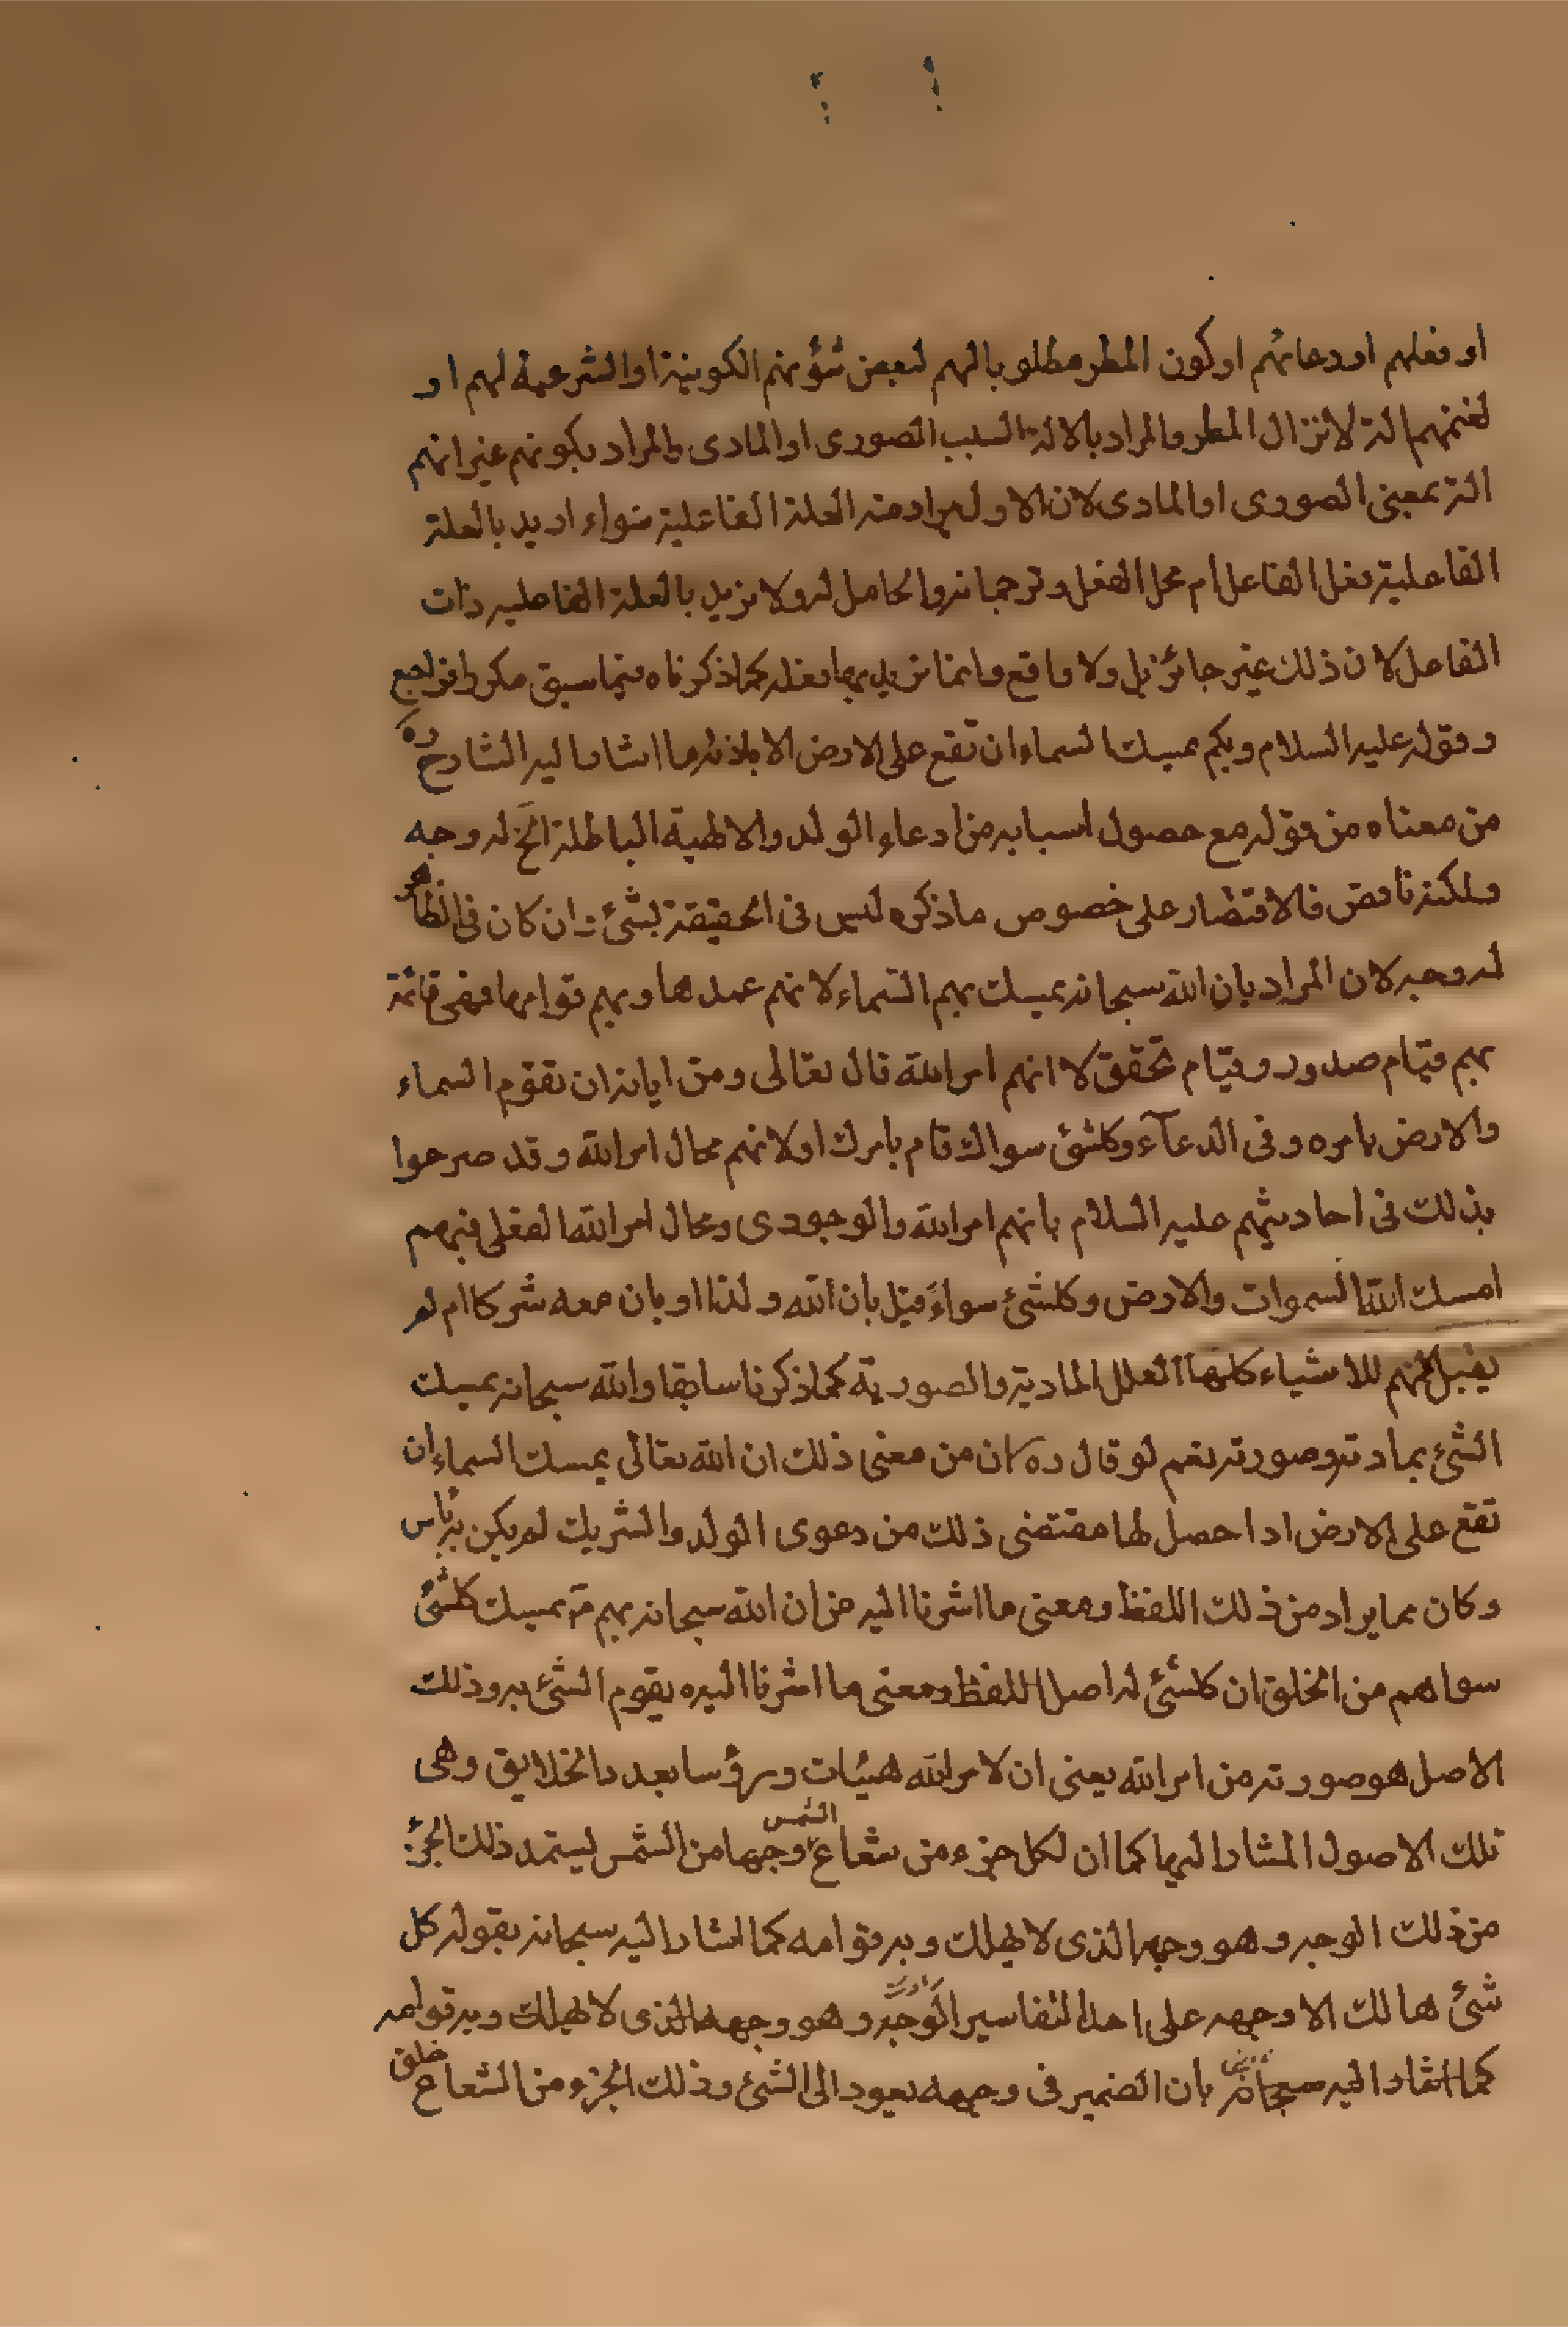 او فعلهم او دعائهم او كون المطر مطلوبا لهم لبعض شؤنهم الكونية او الشرعية لهم او
الة لانزال المطر والمراد بالالة السبب الصورى او المادى والمراد بكونهم غير انهم
الة بمعنى الصورى او المادى لان الاول يراد منه العلة الفاعلية سواء اريد بالعلة
الفاعلية فعل الفاعل ام محل الفعل وترجمانه والحامل له ولا نريد بالعلة الفاعلية ذات
الفاعل لان ذلك غير جائز بل ولا واقع وانما نريد بها فعله كما ذكرناه فيما سبق مكررا فراجع
وقوله عليه السلام وبكم يمسك السماء ان تقع على الارض الا باذنه ما اشار اليه الشارح ره
من معناه من قوله مع حصول اسبابه من ادعاء الولد والالهية الباطلة الخ له وجه
ولكنه ناقص فالاقتصار على خصوص ما ذكره ليس فى الحقيقة بشئ وان كان فى الظاهر
له وجه لان المراد بان الله سبحانه يمسك بهم السماء لانهم عمدها وبهم قوامها فهى قائمة
بهم قيام صدور وقيام تحقق لا انهم امر الله قال تعالى ومن اياته ان تقوم السماء
والارض بامره وفى الدعآء وكلشئ سواك قام بامرك اولانهم محال امر الله وقد صرحوا
بذلك فى احاديثهم عليه السلام بانهم امر الله والوجودى ومحال امر الله الفعلى فبهم
امسك الله السموات والارض وكلشئ سواء قيل بان الله ولدا او بان معه شركا ام لم
يقل لانهم للاشياء كلها العلل المادية والصورية كما ذكرنا سابقا والله سبحانه يمسك
الشئ بمادته وصورته نعم لو قال ره كان من معنى ذلك ان الله تعالى يمسك السماء ان
تقع على الارض اذا حصل لها مقتضى ذلك من دعوى الولد والشريك لم يكن به باس
وكان مما يراد من ذلك اللفظ ومعنى ما اشرنا اليه من ان الله سبحانه بهم يمسك كلشئ
سواهم من الخلق ان كلشئ له اصل اللفظ ومعنى ما اشرنا اليه يقوم الشئ به وذلك
الاصل هو صورته من امر الله يعنى ان لامر الله هيئات ورؤسا بعدد الخلايق وهى
تلك الاصول المشار اليها كما ان لكل جزء من شعاع الشمس وجها من الشمس يستمد ذلك الجزء
من ذلك الوجه وهو وجهه الذى لا يهلك وبه قوامه كما اشار اليه سبحانه بقوله كل
شئ هالك الا وجهه على احد التفاسير الوجه وهو وجهه الذى لا يهلك وبه قوامه
كما اشار اليه سبحانه بان الضمير فى وجهه يعود الى الشئ وذلك الجزء من الشعاع خلق